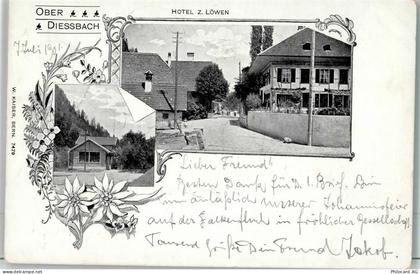 OBER
DIESSBACH
HOTEL Z. LÖWEN
7 Juli 1901
W. KAISER, BERN. 7479
Lieber Freund!
Besten Dank für D. l. Brief. Bin
nun anläßlich unserer Johannisfeier
auf der Falkenfluh in fröhlicher Gesellschaft
Tausend Grüße Dein Freund Jakob.
AK-ansichtskarten.de